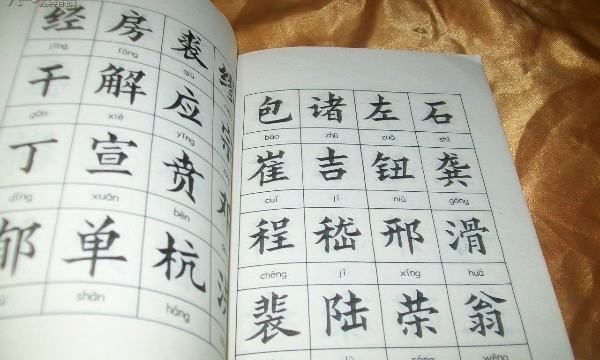 经 房 裘
jīng fáng qiú
干 解 应
gān xiè yīng
丁 宣 贲
dīng xuān bēn
郁 单 杭
shàn háng
包 诸 左 石
bāo zhū zuǒ shí
崔 吉 钮 龚
cuī jí niǔ gōng
程 嵇 邢 滑
chéng jī xíng huá
裴 陆 荣 翁
wēng